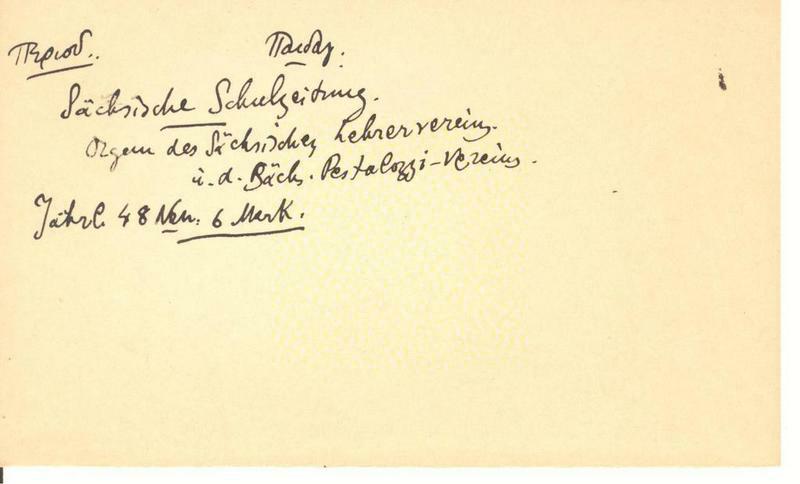 Περιοδ. Παιδαγ.
Sächsische Schulzeitung.
Organ des Sächsischen Lehrervereins
u. d. Sächs. Pestalozzi-Vereins.
Jährl. 48 Nrn. 6 Mark.